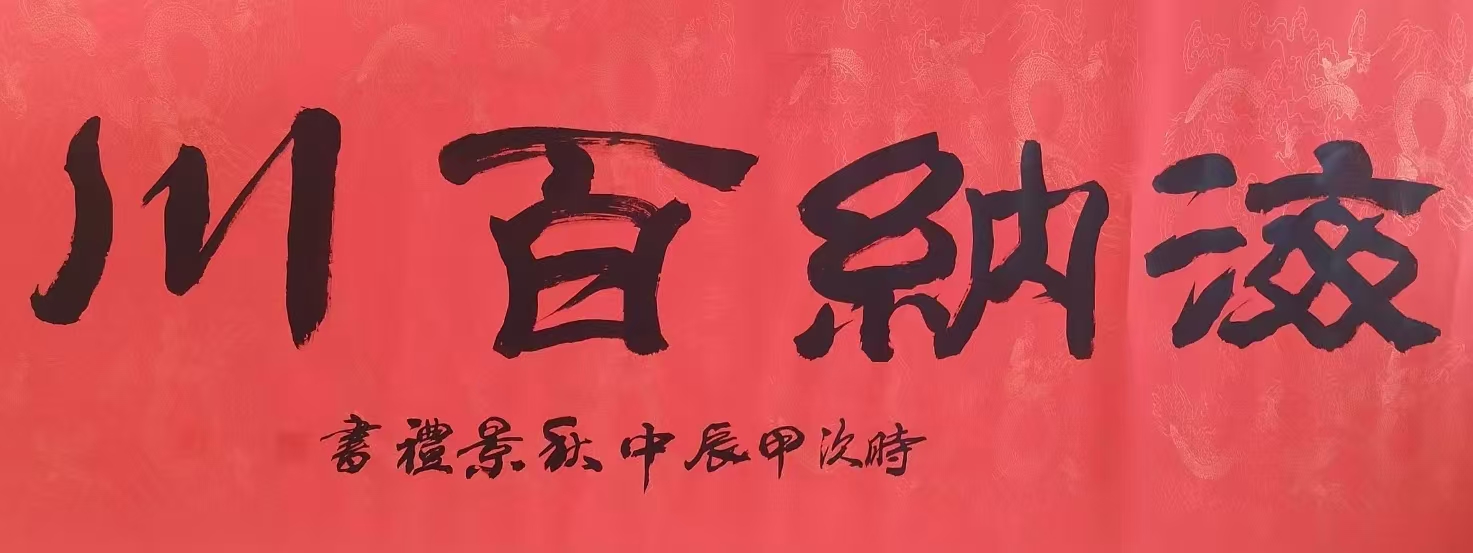 海納百川
時次甲辰中秋景禮書